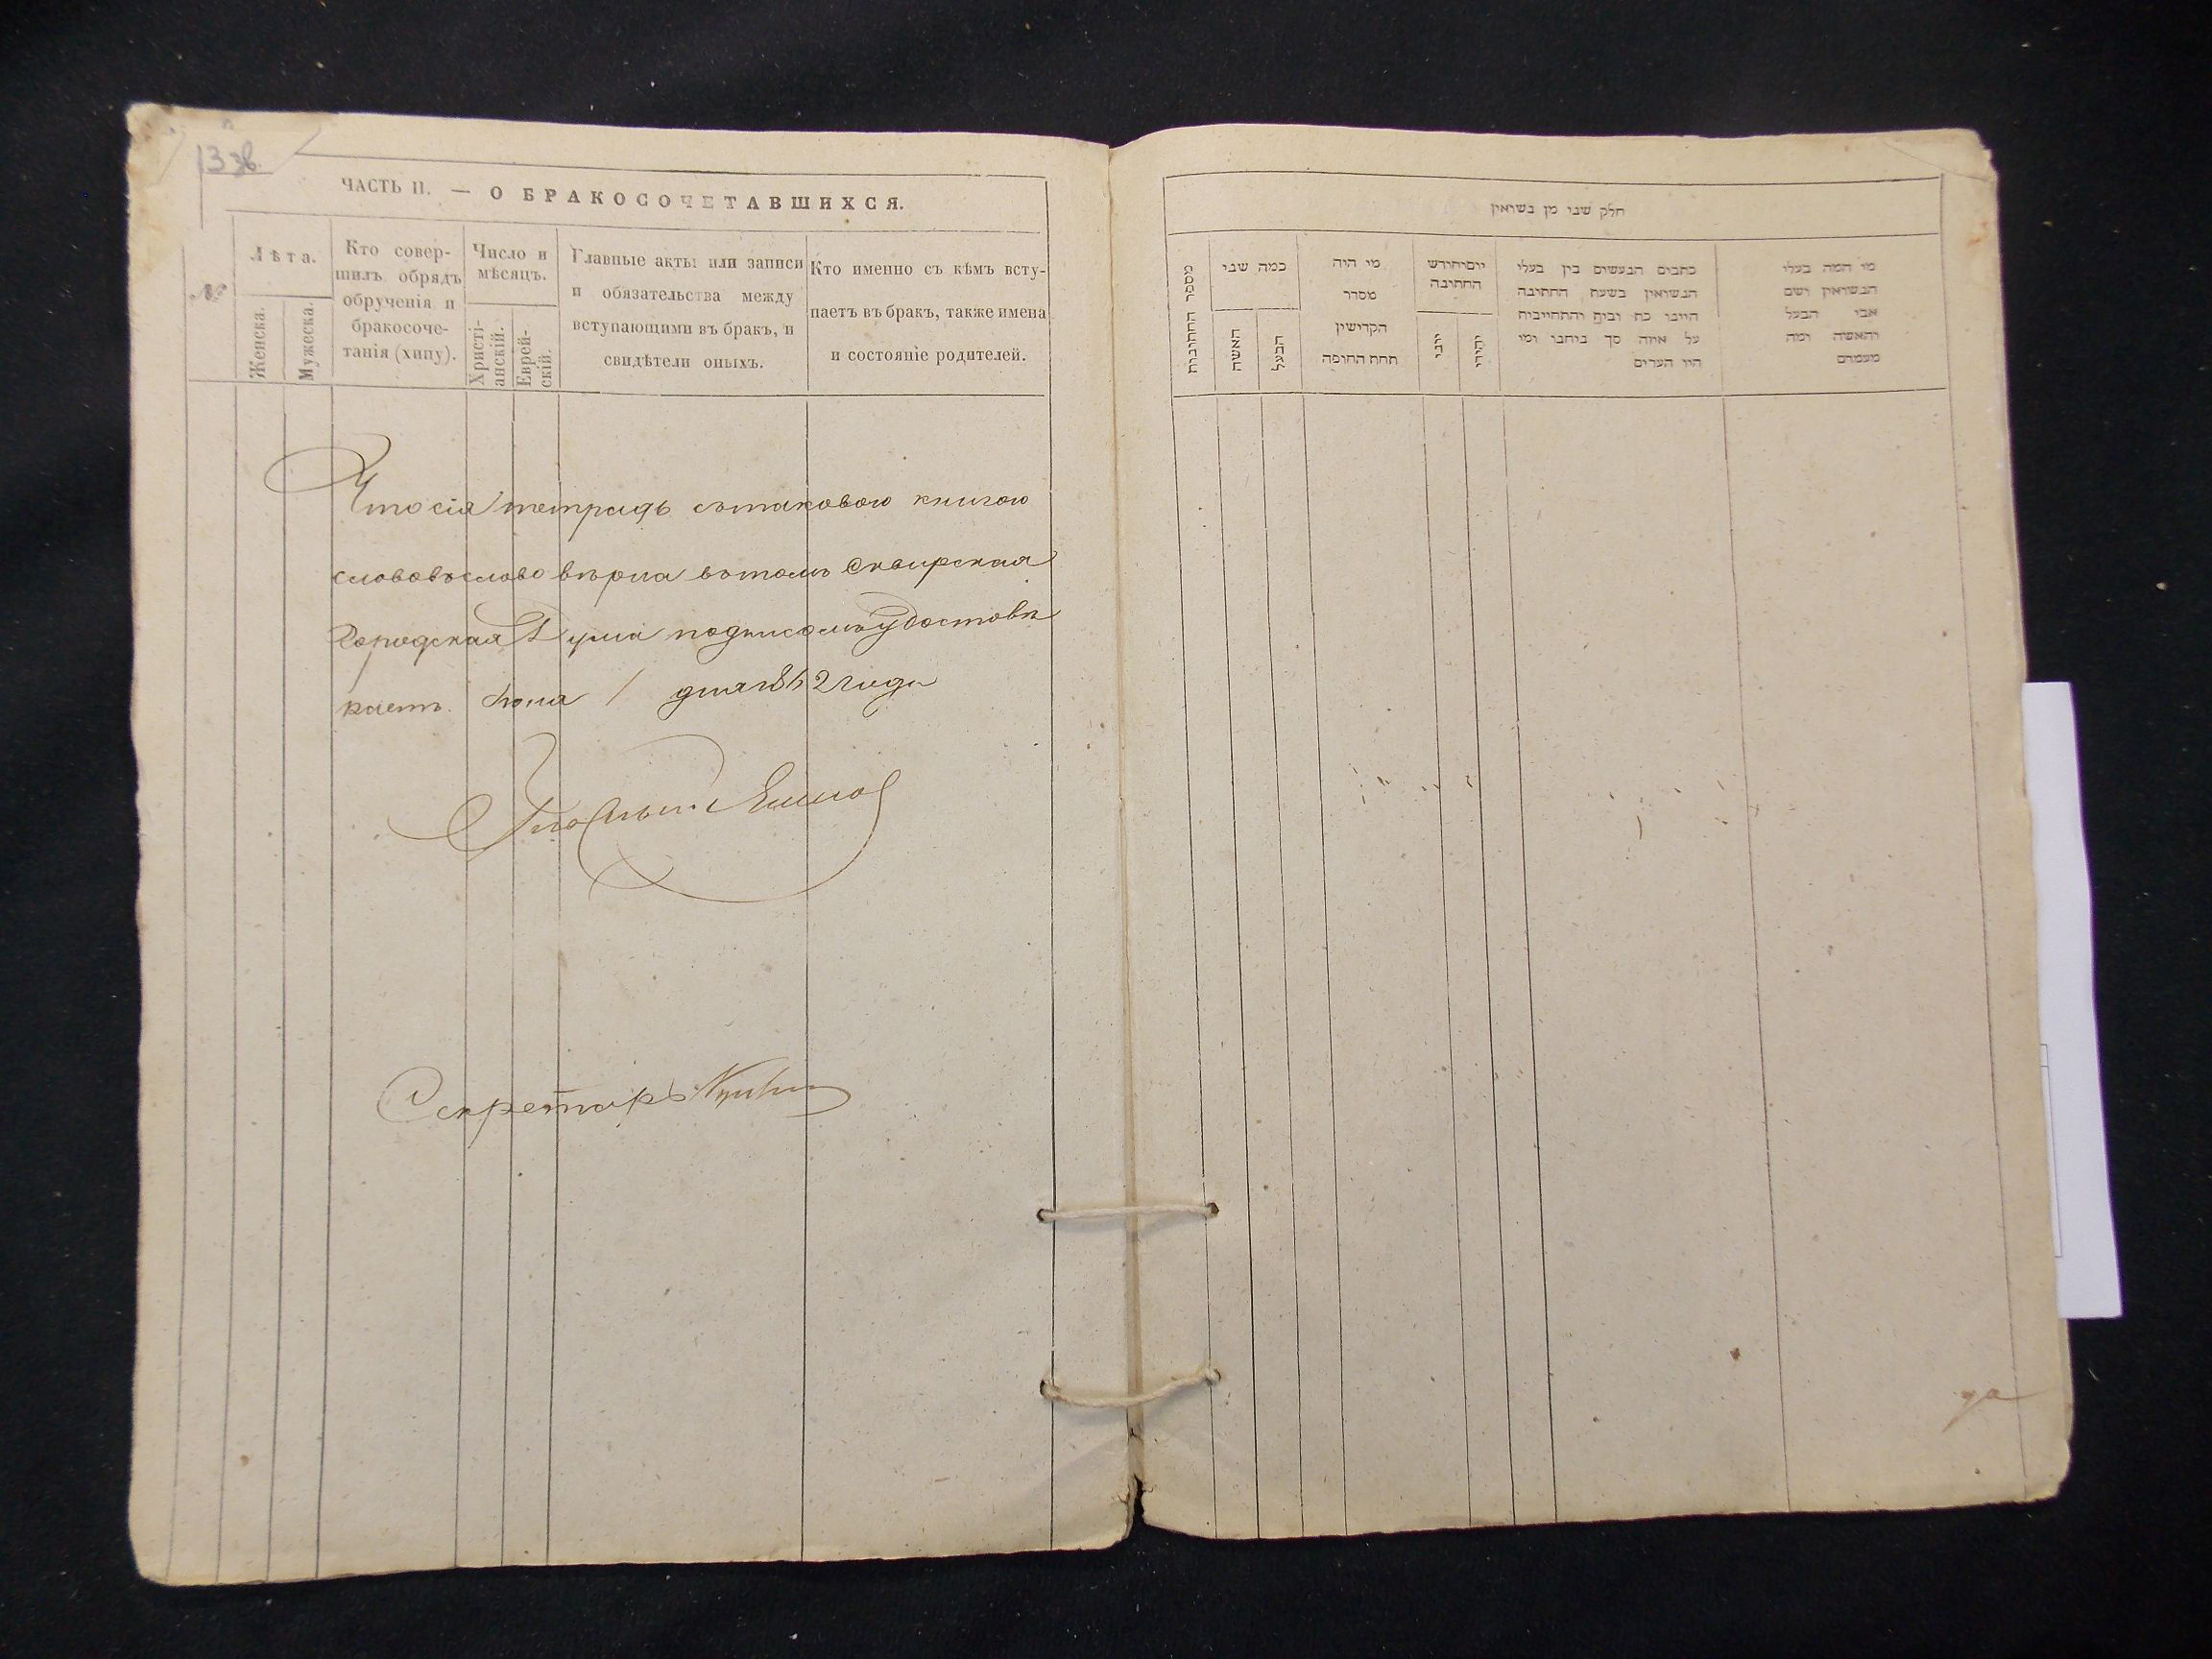 13 зв.
ЧАСТЬ II. — О БРАКОСОЧЕТАВШИХСЯ.
№
Лѣта.
Женска.
Мужеска.
Кто совер-
шилъ обрядъ
обрученія и
бракосоче-
танія (хипу).
Число и
мѣсяцъ.
Христі-
анскій.
Еврей-
скій.
Главные акты или записи
и обязательства между
вступающими въ бракъ, и
свидѣтели оныхъ.
Кто именно съ кѣмъ всту-
паетъ въ бракъ, также имена
и состояніе родителей.
Что сія тетрадь съ таковою книгою
слово въ слово вѣрна въ томъ Сквирская
Городская Дума подписомъ удостовѣ
ряетъ. 1 дня 1862 года
Секретарь
חלק שני מן נשואין
מספר החתונות
כמה שני
האשה
הבעל
מי היה
מסדר
הקדישין
תחת החופה
יום וחודש
החתונה
יוני
יהודי
כתבים הנעשים בין בעלי
הנשואין בשעת החתונה
היינו כח וביח והתחייבות
על איזה סך ביחנו ומי
היו העדים
מי המה בעלי
הנשואין ושם
אבי הבעל
והאשה ומה
מעמדם